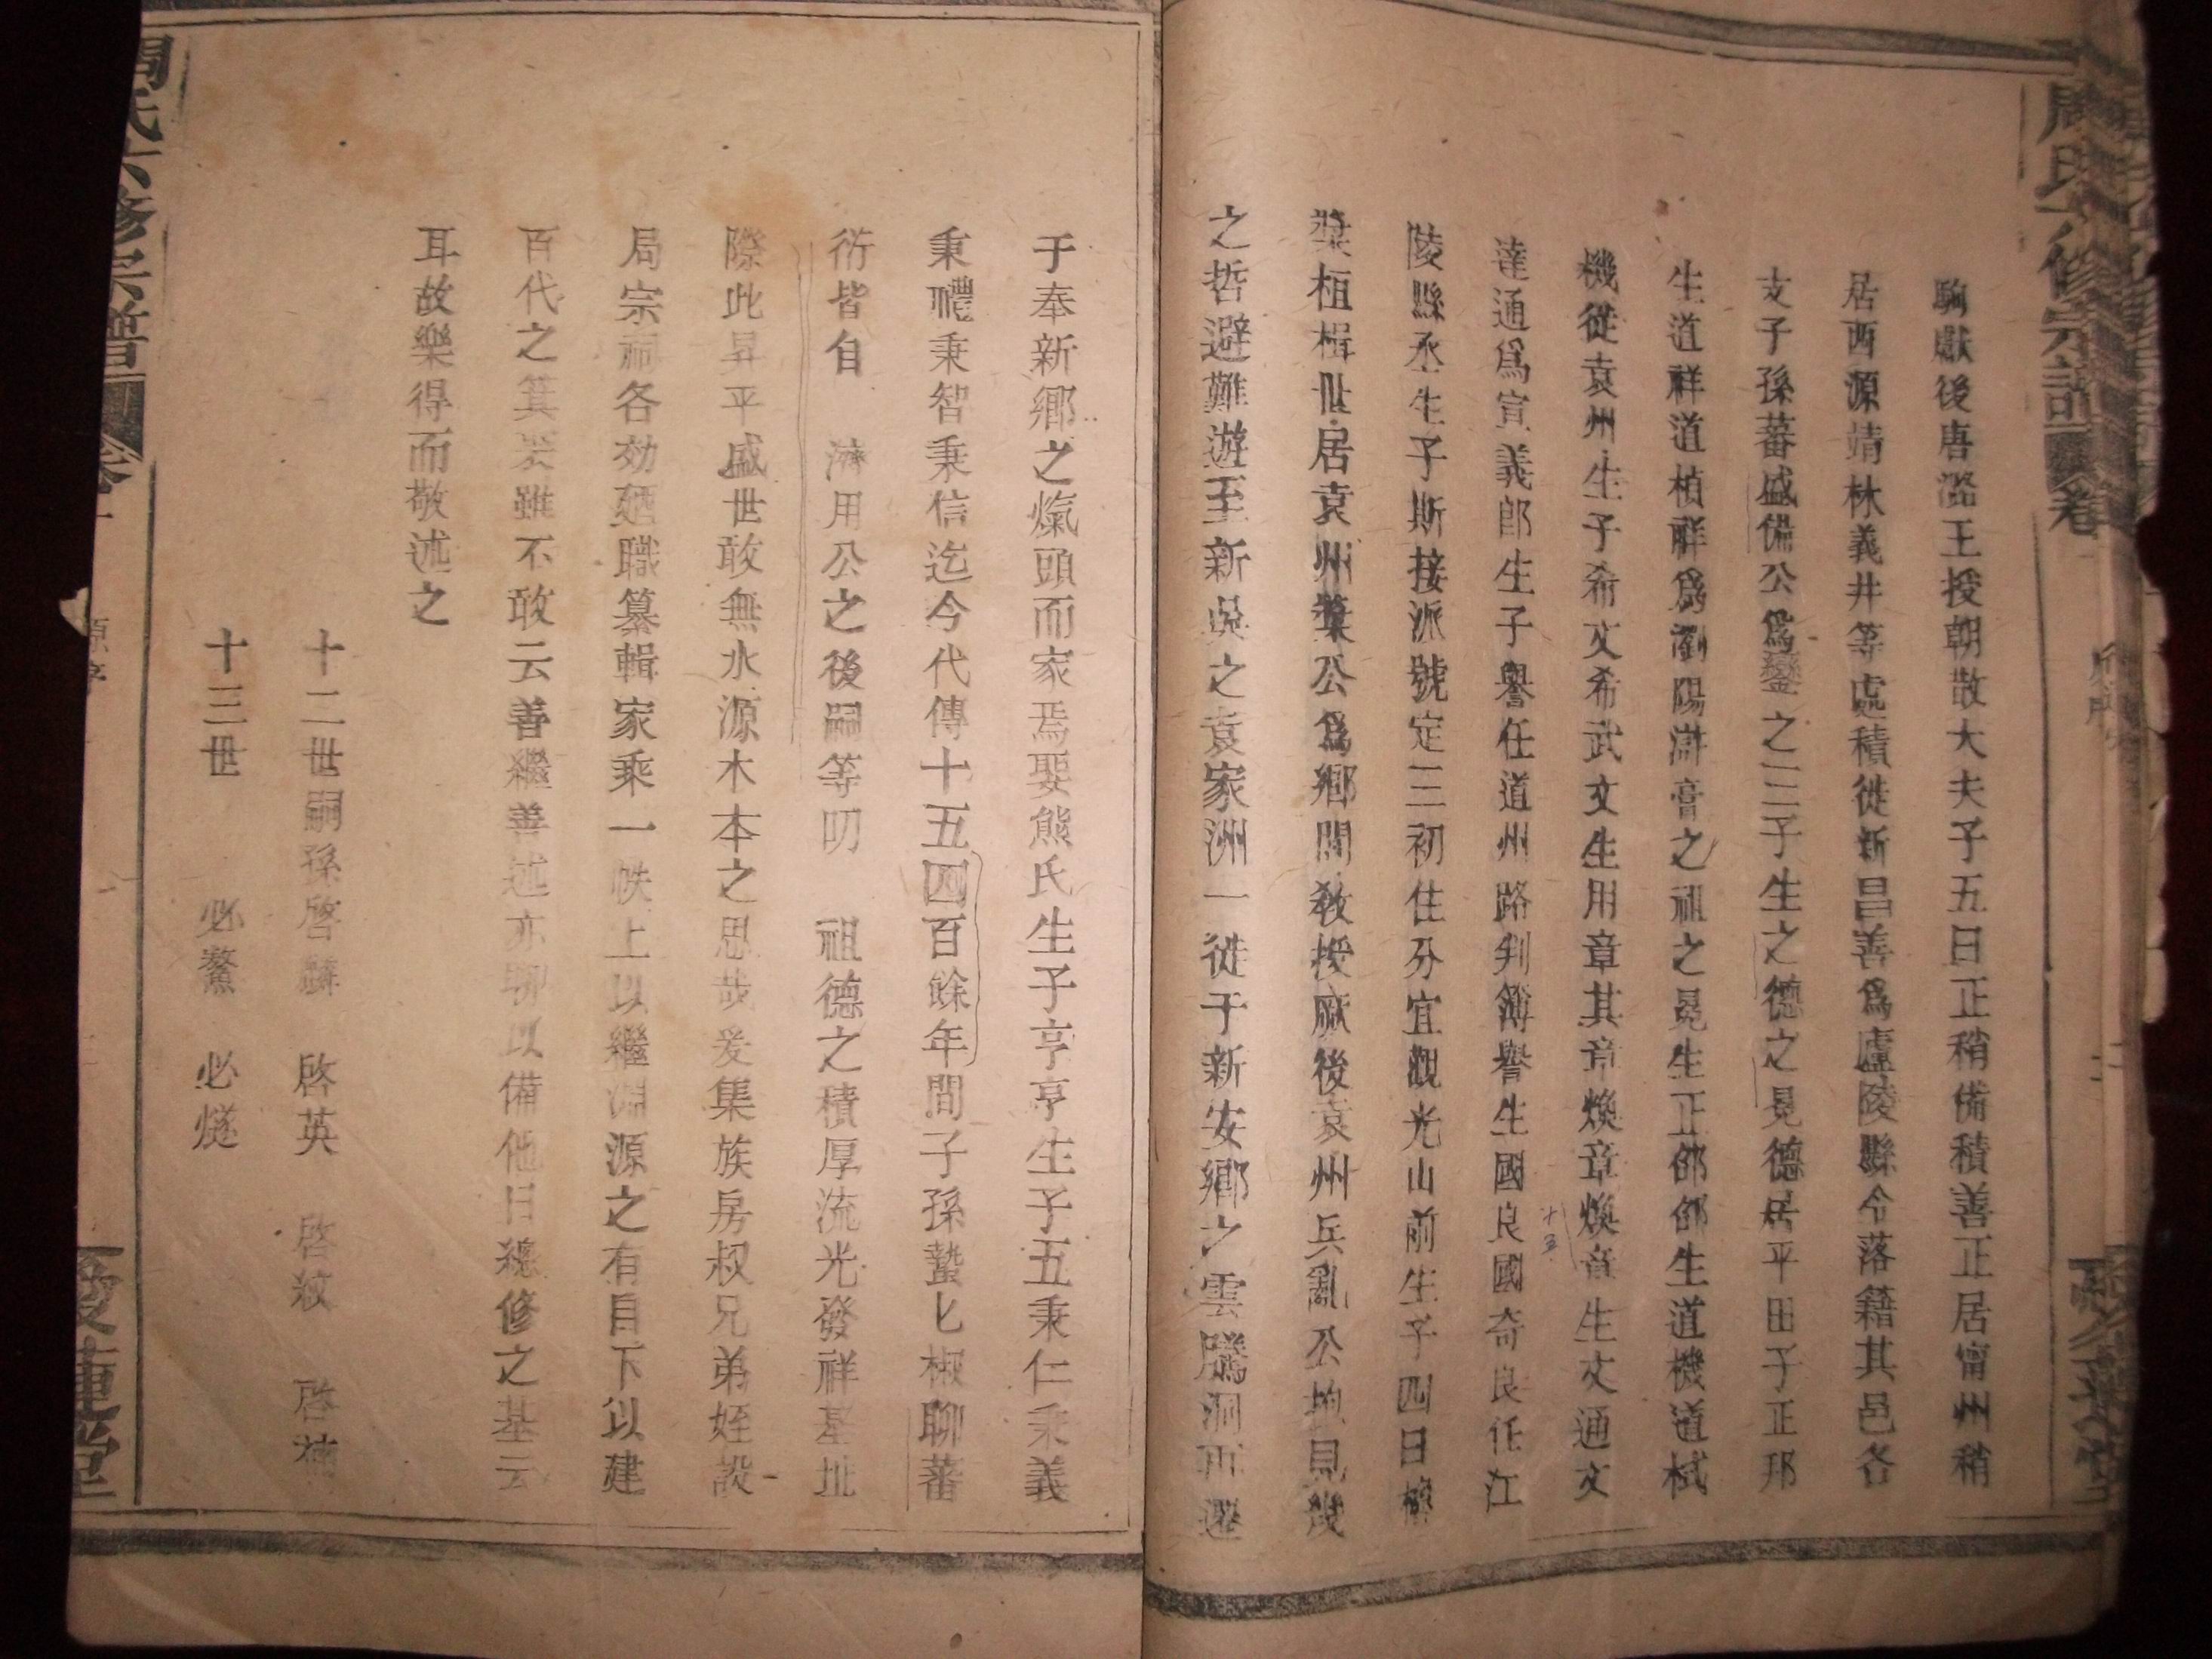 周氏六修宗譜 卷一
駒獻後唐潞王授朝散大夫子五日正稍備積善正居甯州稍
居西源靖林義井等處積徙新昌善爲廬陵縣令落籍其邑各
支子孫蕃盛備公爲鑾之三子生之德之晃德居平田子正邦
生道祥道楨祥爲瀏陽滸膏之祖之晃生正邵邵生道機道栻
機徙袁州生子希文希武文生用章其章煥章煥章生文通文
達通爲宣義郎生子譽任道州路判簿譽生國良國奇良任江
陵縣丞生子斯接派號定三初住分宜觀光山前生子四曰樟
槳桓楫世居袁州槳公爲鄉間敎授厥後袁州兵亂公抱見幾
之哲避難遊至新吳之袁家洲一徙于新安鄉之雲騰洞再遷
于奉新鄉之爘頭而家焉娶熊氏生子亨亨生子五秉仁秉義
秉禮秉智秉信迄今代傳十五四百餘年間子孫蟄匕椒聊蕃
衍皆自 濟用公之後嗣等叨 祖德之積厚流光發祥基址
際此昇平盛世敢無水源木本之思哉爰集族房叔兄弟姪設
局宗祠各効廼職纂輯家乘一帙上以繼淵源之有自下以建
百代之箕裘雖不敢云善繼善述亦聊以備他日總修之基云
耳故樂得而敬述之
十二世嗣孫啓麟 啓英 啓紋 啓補
十三世 必鰲 必燧
周氏六修宗譜 卷一 原序 愛蓮堂